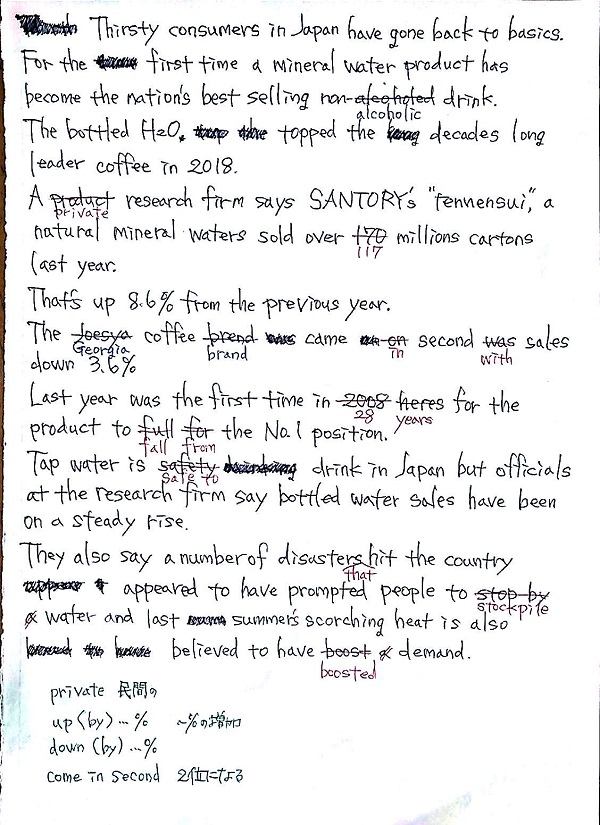 Thirsty consumers in Japan have gone back to basics.
For the first time a mineral water product has
become the nation's best selling non-alcoholic drink.
The bottled H2O, topped the decades long
leader coffee in 2018.
A product research firm says SANTORY's "Tennensui," a
private
natural mineral waters sold over 170 millions cartons
117
last year.
That's up 8.6% from the previous year.
The coffee brend came on second was sales
Georgia brand in with
down 3.6%
Last year was the first time in 2008 heres for the
28 years
product to full for the No.1 position.
fall from
Tap water is safety drink in Japan but officials
safe to
at the research firm say bottled water sales have been
on a steady rise.
They also say a number of disasters hit the country
that
appeared to have prompted people to stop by
stockpile
water and last summer's scorching heat is also
believed to have boost demand.
boosted
private 民間の
up (by) … % ~%の増加
down (by) … %
come in second 2位になる